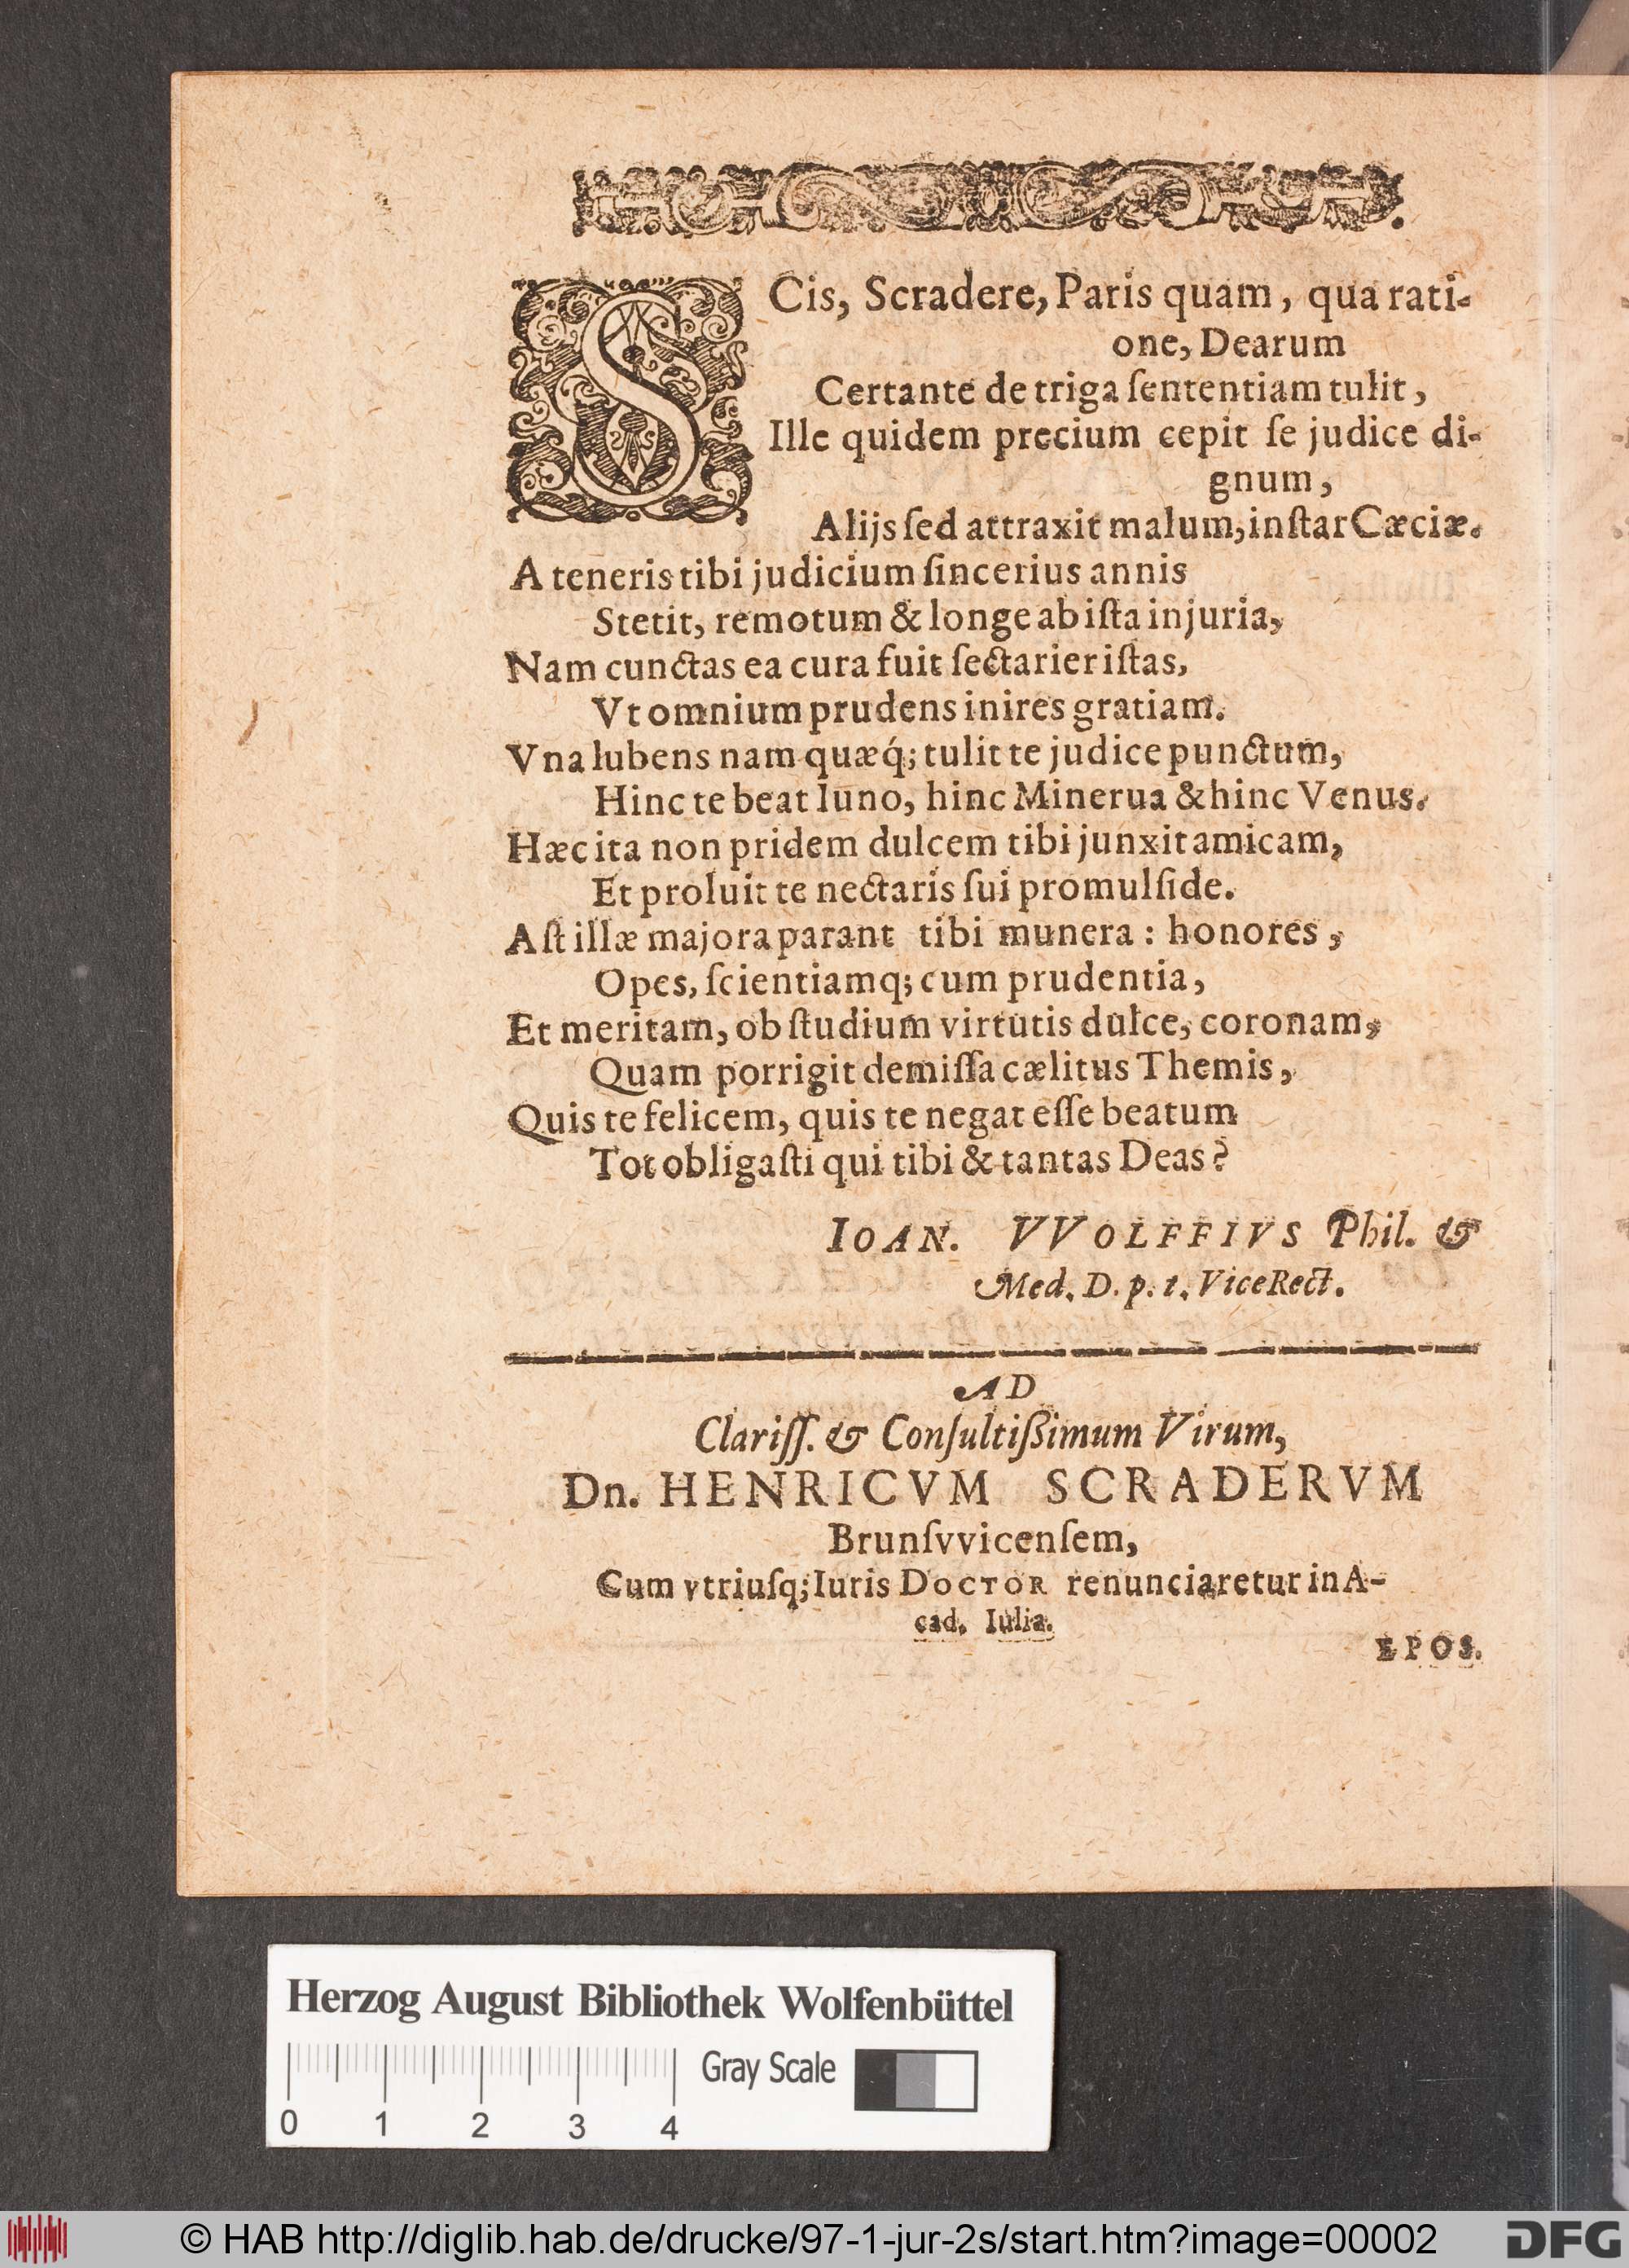 SCis, Scradere, Paris quam, qua rati-
one, Dearum
Certante de triga ſententiam tulit,
Ille quidem precium cepit ſe judice di-
gnum,
Alijs ſed attraxit malum, inſtar Cæciæ.
A teneris tibi judicium ſincerius annis
Stetit, remotum & longe ab iſta injuria,
Nam cunctas ea cura fuit ſectarier iſtas,
Vt omnium prudens inires gratiam.
Vna lubens nam quæq́; tulit te judice punctum,
Hinc te beat Iuno, hinc Minerua & hinc Venus.
Hæc ita non pridem dulcem tibi junxit amicam,
Et proluit te nectaris ſui promulſide.
Aſt illæ majora parant tibi munera : honores,
Opes, ſcientiamq; cum prudentia,
Et meritam, ob ſtudium virtutis dulce, coronam,
Quam porrigit demiſſa cælitus Themis,
Quis te felicem, quis te negat eſſe beatum
Tot obligaſti qui tibi & tantas Deas?
IOAN. VVOLFFIVS Phil. &
Med. D. p. t. ViceRect.
AD
Clariſſ. & Conſultißimum Virum,
Dn. HENRICVM SCRADERVM
Brunſvvicenſem,
Cum vtriuſq; Iuris DOCTOR renunciaretur in A-
cad. Iulia.
EPOS.
Herzog August Bibliothek Wolfenbüttel
Gray Scale
0 1 2 3 4
© HAB http://diglib.hab.de/drucke/97-1-jur-2s/start.htm?image=00002
DFG